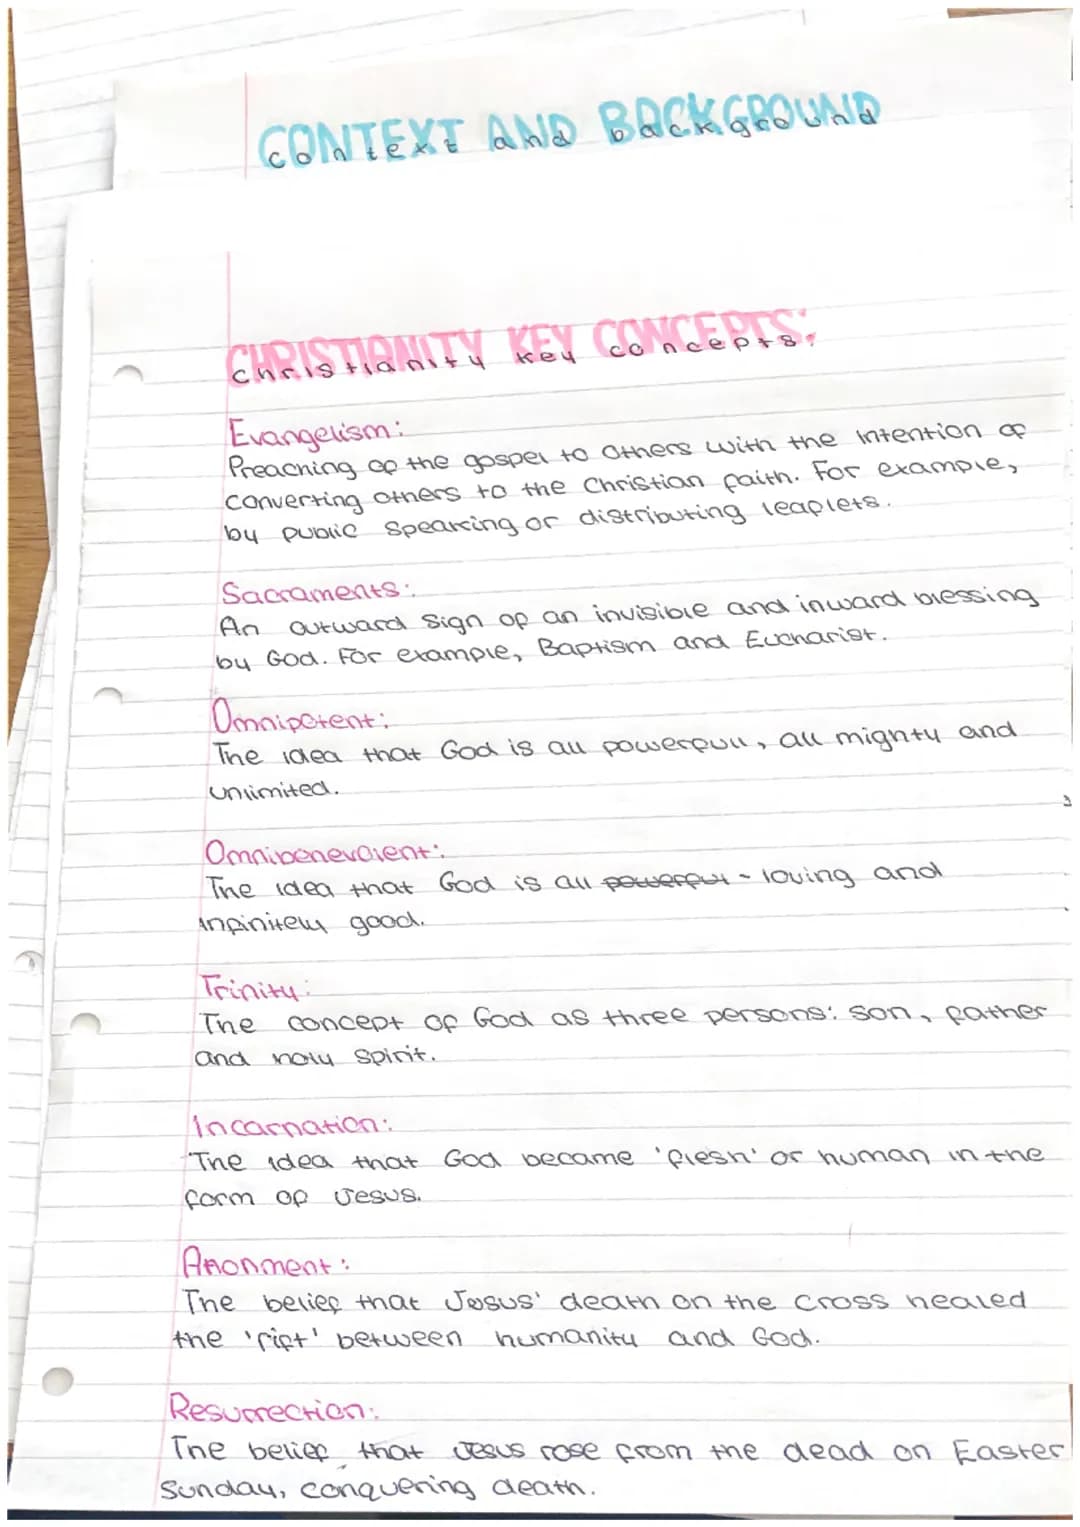 CONTEXT AND BACKGROUND
context and background
CHRISTIANITY KEY CONCEPTS:
Christianity key concepts:
Evangelism:
Preaching of the gospel to others with the intention of
converting others to the Christian faith. For example,
by public speaking or distributing leaflets.
Sacraments:
An outward sign of an invisible and inward blessing
by God. For example, Baptism and Eucharist.
Omnipotent:
The idea that God is all powerfull, all mighty and
unlimited.
Omnibenevolent:
The idea that God is all powerful - loving and
infinitely good.
Trinity:
The concept of God as three persons: son, father
and holy spirit.
Incarnation:
The idea that God became 'flesh' or human in the
form of Jesus.
Atonment:
The belief that Jesus' death on the cross healed
the 'rift' between humanity and God.
Resurrection:
The belief that Jesus rose from the dead on Easter
Sunday, conquering death.